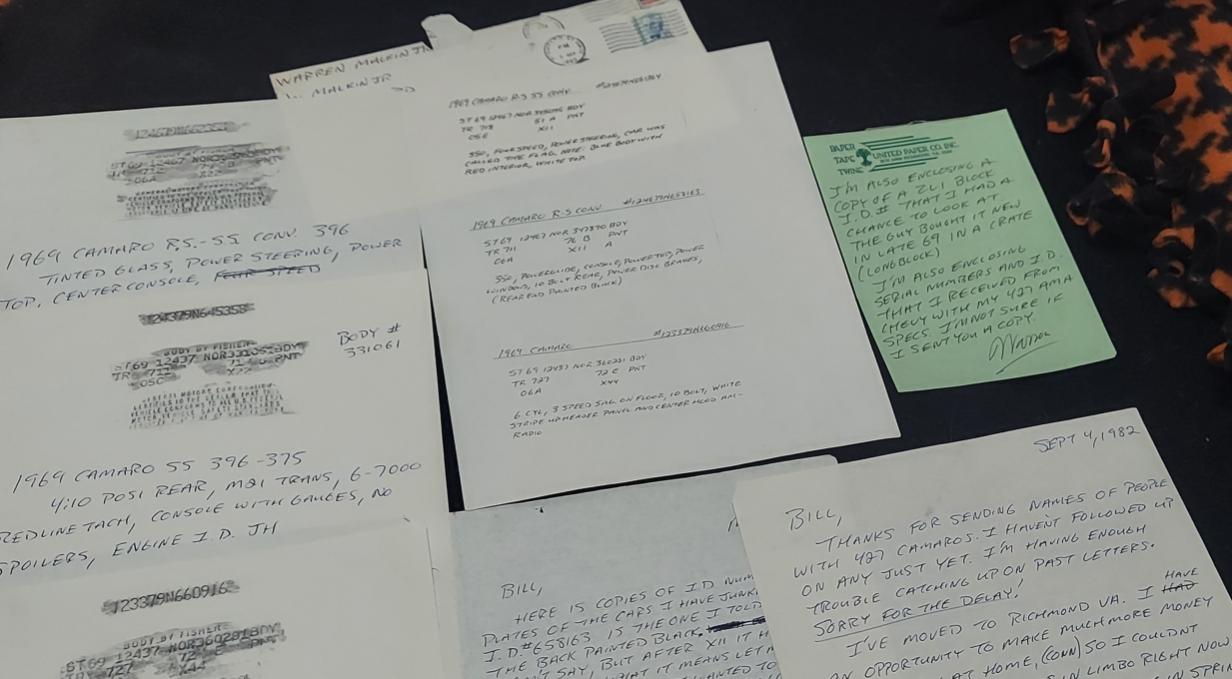 WARREN MALKIN JR
MALKIN JR
ST69 12467
TR 712
O6A X22
1969 CAMARO R.S.-S.S. CONV. 396
TINTED GLASS, POWER STEERING, POWER
TOP, CENTER CONSOLE, FOUR SPEED
124379N645358
BODY BY FISHER
ST69 12437 NOR BDY
TR 712 71 PNT
X22
BODY #
331061
1969 CAMARO SS 396-375
4:10 POSI REAR, M21 TRANS, 6-7000
REDLINE TACH, CONSOLE WITH GAUGES, NO
SPOILERS, ENGINE I.D. JH
123379N660916
BODY BY FISHER
ST69 12437 BDY
TR 727 72 PNT
X44
1969 CAMARO R.S SS CONV.
ST 69 12467 NOR BDY
TR 51 A PNT
X11
350, FOUR SPEED, POWER STEERING, CAR WAS
CALLED THE FLAG. NOTE: BODY WITH
RED INTERIOR, WHITE TOP.
1969 CAMARO R.S CONV. #124679N658163
ST 69 12467 NOR BDY
TR 711 76 B PNT
O6A X11 A
350, POWERGLIDE, CONSOLE, POWER TOP, POWER
WINDOWS, 10 BOLT REAR, POWER DISC BRAKES,
(REAR END PAINTED BLACK)
1969 CAMARO #123379N660916
ST 69 12437 NOR BDY
TR 727 72 C PNT
O6A X44
6 CYL, 3 SPEED SAG. ON FLOOR, 10 BOLT, WHITE
STRIPE UP HEADER PANEL AND CENTER HOOD AM-
RADIO
PAPER
TAPE
TWINE
UNITED PAPER CO. INC.
I'M ALSO ENCLOSING A
COPY OF A ZL1 BLOCK
I.D.# THAT I HAD A
CHANCE TO LOOK AT
THE GUY BOUGHT IT NEW
IN LATE 69 IN A CRATE
(LONGBLOCK)
I'M ALSO ENCLOSING
SERIAL NUMBERS AND I.D.
THAT I RECEIVED FROM
CHEVY WITH MY 427 AMA
SPECS. I'M NOT SURE IF
I SENT YOU A COPY.
Warren
BILL,
HERE IS COPIES OF I.D NUM
PLATES OF THE CARS I HAVE JUNK
I.D.#658163 IS THE ONE I TOLD
THE BACK PAINTED BLACK.
SAY, BUT AFTER XII IT H
WHAT IT MEANS LET M
WANTED TO
SEPT 4, 1982
BILL,
THANKS FOR SENDING NAMES OF PEOPLE
WITH 427 CAMAROS. I HAVEN'T FOLLOWED UP
ON ANY JUST YET. I'M HAVING ENOUGH
TROUBLE CATCHING UP ON PAST LETTERS.
SORRY FOR THE DELAY!
I'VE MOVED TO RICHMOND VA. I HAD HAVE
AN OPPORTUNITY TO MAKE MUCH MORE MONEY
AT HOME, (CONN) SO I COULDN'T
IN LIMBO RIGHT NOW
IN SPRIN